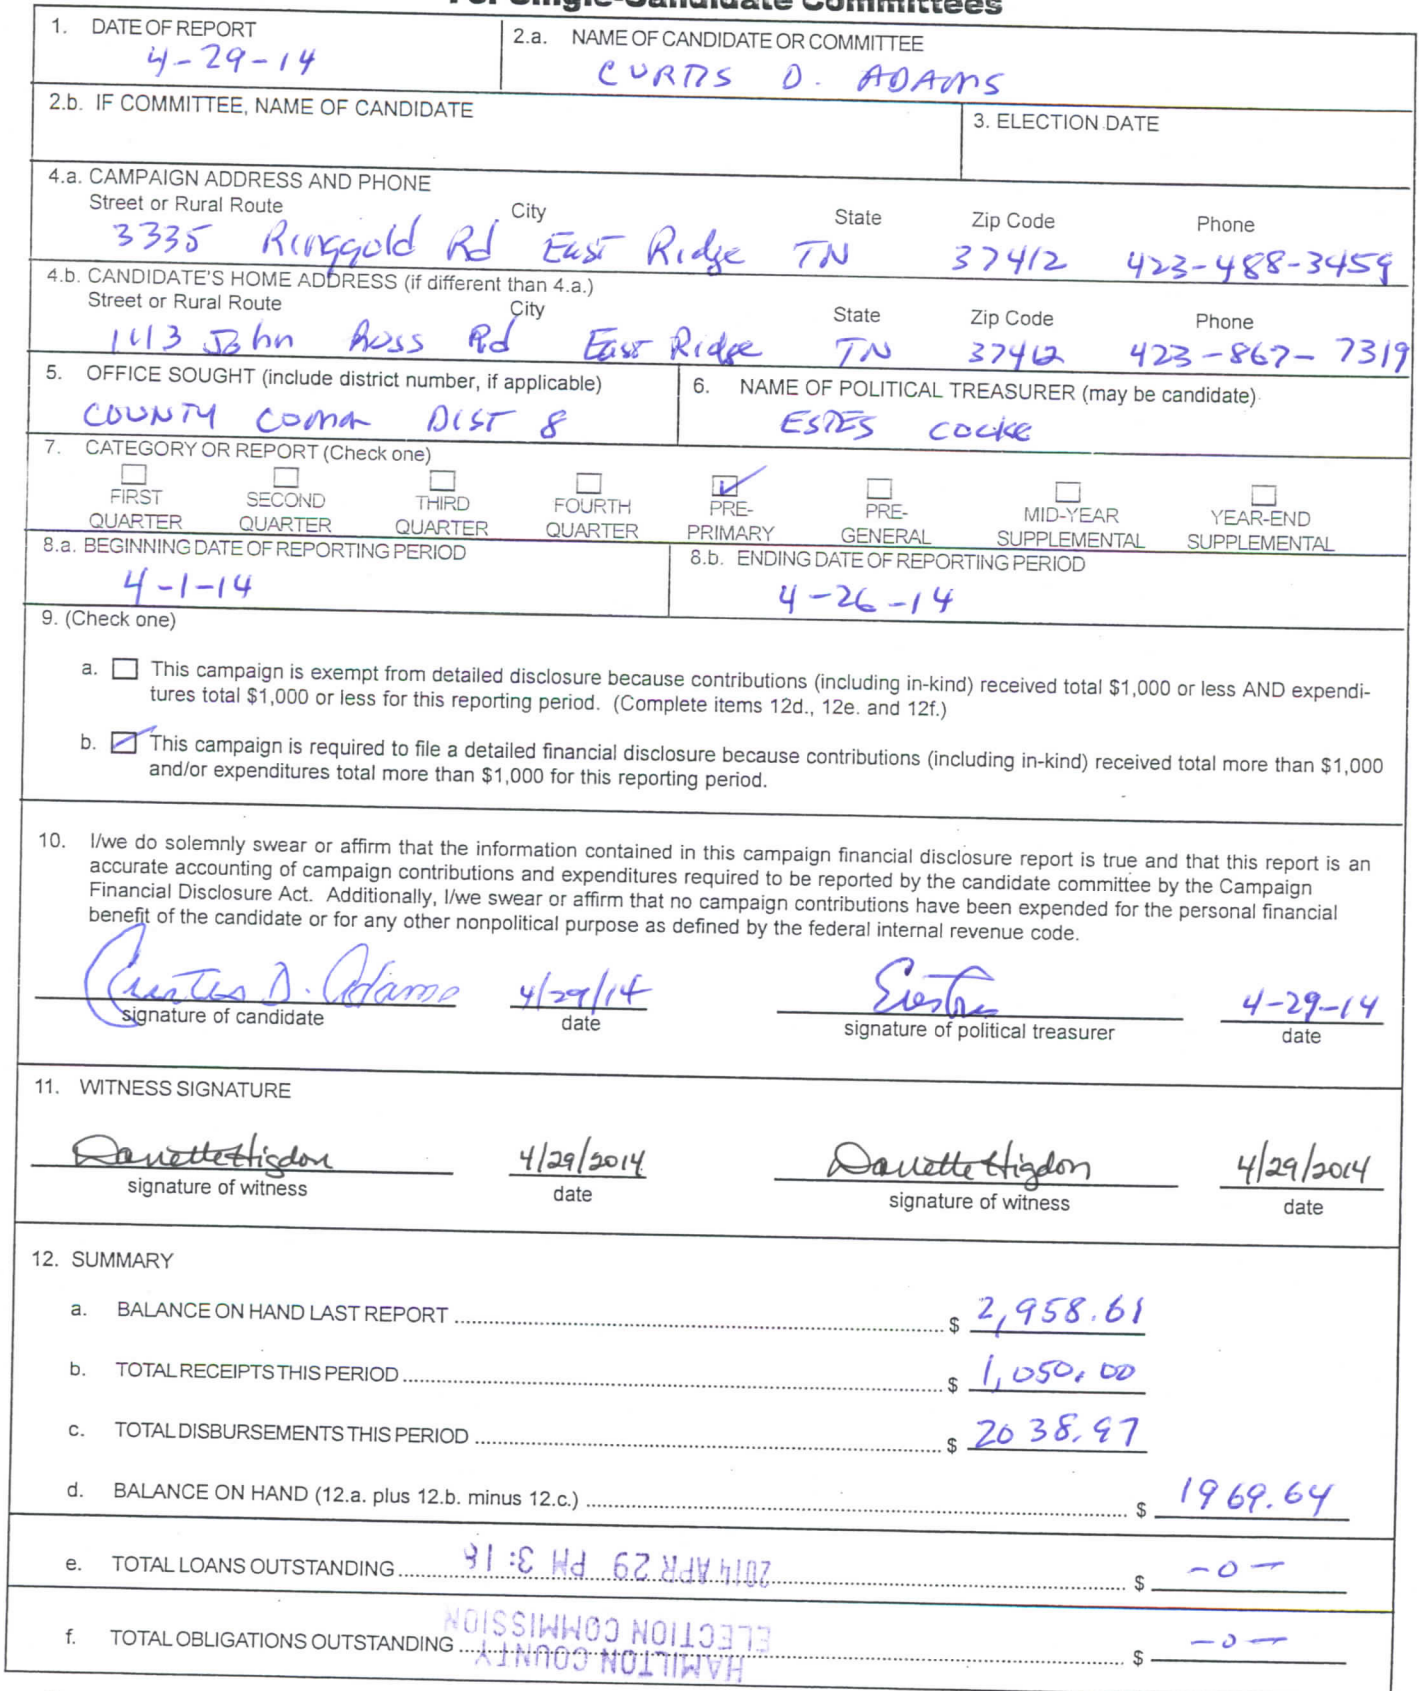 For Single-Candidate Committees
1. DATE OF REPORT
4-29-14
2.a. NAME OF CANDIDATE OR COMMITTEE
CURTIS D. ADAMS
2.b. IF COMMITTEE, NAME OF CANDIDATE
3. ELECTION DATE
4.a. CAMPAIGN ADDRESS AND PHONE
Street or Rural Route City State Zip Code Phone
3335 Ringgold Rd East Ridge TN 37412 423-488-3459
4.b. CANDIDATE'S HOME ADDRESS (if different than 4.a.)
Street or Rural Route City State Zip Code Phone
1113 John Ross Rd East Ridge TN 37412 423-867-7319
5. OFFICE SOUGHT (include district number, if applicable)
COUNTY COMM DIST 8
6. NAME OF POLITICAL TREASURER (may be candidate)
ESTES COCKE
7. CATEGORY OR REPORT (Check one)
FIRST QUARTER
SECOND QUARTER
THIRD QUARTER
FOURTH QUARTER
PRE-PRIMARY
PRE-GENERAL
MID-YEAR SUPPLEMENTAL
YEAR-END SUPPLEMENTAL
8.a. BEGINNING DATE OF REPORTING PERIOD
4-1-14
8.b. ENDING DATE OF REPORTING PERIOD
4-26-14
9. (Check one)
a. This campaign is exempt from detailed disclosure because contributions (including in-kind) received total $1,000 or less AND expendi-
tures total $1,000 or less for this reporting period. (Complete items 12d., 12e. and 12f.)
b. This campaign is required to file a detailed financial disclosure because contributions (including in-kind) received total more than $1,000
and/or expenditures total more than $1,000 for this reporting period.
10. I/we do solemnly swear or affirm that the information contained in this campaign financial disclosure report is true and that this report is an
accurate accounting of campaign contributions and expenditures required to be reported by the candidate committee by the Campaign
Financial Disclosure Act. Additionally, I/we swear or affirm that no campaign contributions have been expended for the personal financial
benefit of the candidate or for any other nonpolitical purpose as defined by the federal internal revenue code.
Curtis D. Adams 4/29/14 4-29-14
signature of candidate date signature of political treasurer date
11. WITNESS SIGNATURE
Danette Higdon 4/29/2014 Danette Higdon 4/29/2014
signature of witness date signature of witness date
12. SUMMARY
a. BALANCE ON HAND LAST REPORT $ 2,958.61
b. TOTAL RECEIPTS THIS PERIOD $ 1,050.00
c. TOTAL DISBURSEMENTS THIS PERIOD $ 2038.97
d. BALANCE ON HAND (12.a. plus 12.b. minus 12.c.) $ 1969.64
e. TOTAL LOANS OUTSTANDING $ -0-
2014 APR 29 PM 3:18
f. TOTAL OBLIGATIONS OUTSTANDING $ -0-
HAMILTON COUNTY
ELECTION COMMISSION